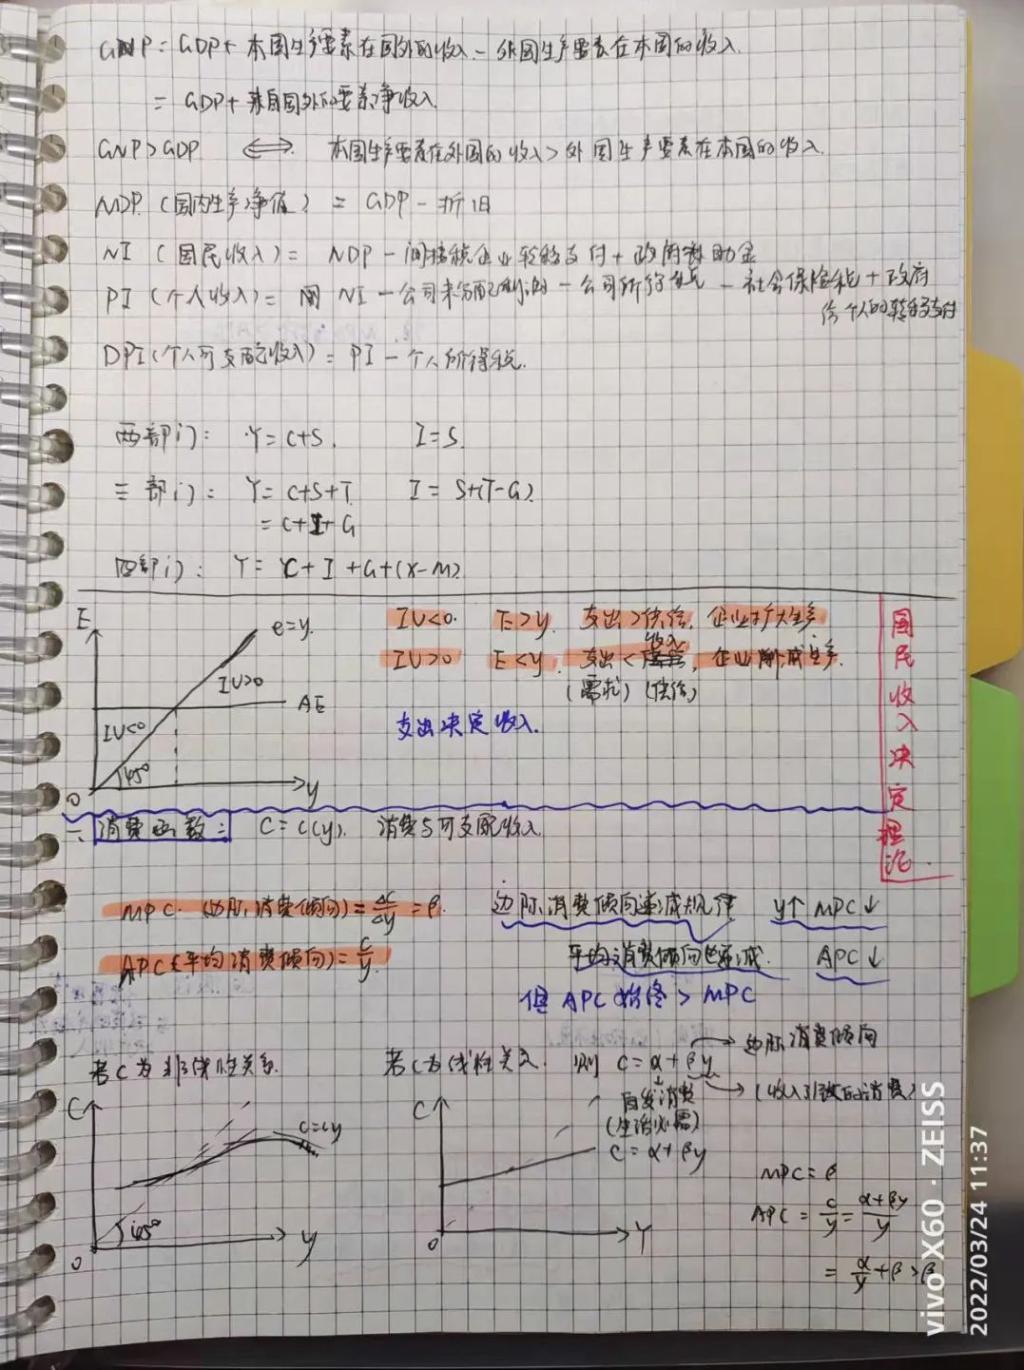 GNP = GDP + 本国生产要素在国外的收入 - 外国生产要素在本国的收入.
= GDP + 来自国外的要素净收入
GNP > GDP ⟺ 本国生产要素在外国的收入 > 外国生产要素在本国的收入.
NDP (国内生产净值) = GDP - 折旧
NI (国民收入) = NDP - 间接税企业转移支付 + 政府补助金
PI (个人收入) = NI - 公司未分配利润 - 公司所得税 - 社会保险税 + 政府
给个人的转移支付
DPI (个人可支配收入) = PI - 个人所得税.
两部门: Y = C+S. I = S.
三部门: Y = C+S+T I = S+(T-G)
= C+I+G
四部门: Y = C + I + G + (X-M)
E
e=y.
IU>0
AE
IU<0
45°
0
y
IU<0. E>y. 支出>供给. 企业扩大生产
收入
IU>0 E<y. 支出< , 企业削减生产.
(需求) (供给)
支出决定收入.
国民收入决定理论.
一、消费函数: C = C(y). 消费与可支配收入
MPC. (边际消费倾向) = ΔC/Δy = β. 边际消费倾向递减规律 y↑ MPC↓
APC (平均消费倾向) = C/y. 平均消费倾向也递减. APC↓
但 APC 始终 > MPC
若C为非线性关系. 若C为线性关系. 则 C = α + βy → 边际消费倾向
→ (收入引致的消费)
自发消费
(生活必需)
C
C=Cy
45°
0
y
C
C = α + βy
0
Y
MPC = β
APC = C/y = α+βy/y
= α/y + β > β
vivo X60 · ZEISS
2022/03/24 11:37